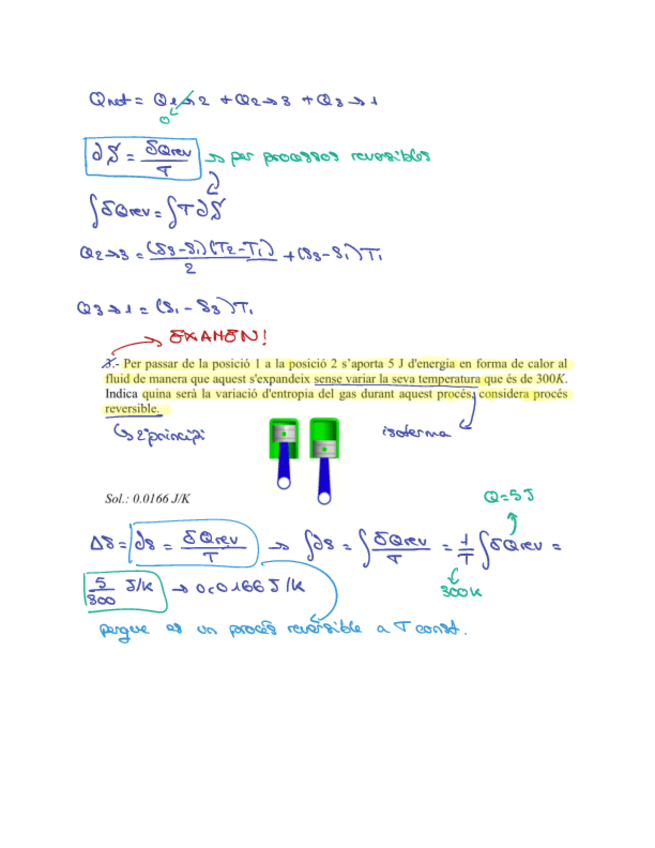 Qnet = Q1→2 + Q2→3 + Q3→1
0
∂S = δQrev / T → per processos reversibles
∫δQrev = ∫T∂S
Q2→3 = (S3-S1)(T2-T1) / 2 + (S3-S1)T1
Q3→1 = (S1 - S3)T1
EXAMEN!
3.- Per passar de la posició 1 a la posició 2 s'aporta 5 J d'energia en forma de calor al
fluid de manera que aquest s'expandeix sense variar la seva temperatura que és de 300K.
Indica quina serà la variació d'entropia del gas durant aquest procés, considera procés
reversible.
↳ 2º principi
isoterma
Sol.: 0.0166 J/K
Q=5J
ΔS = ∂s = δQrev / T → ∫∂s = ∫ δQrev / T = 1/T ∫δQrev =
5/300 J/K → 0.0166 J/K
300K
perque es un procés reversible a T const.